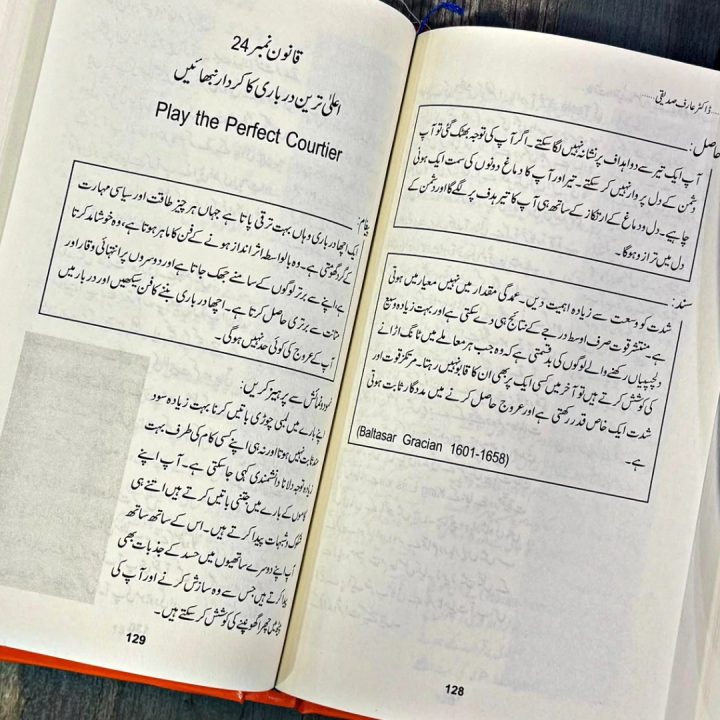 ڈاکٹر عارف صدیقی
حاصل:
آپ ایک تیر سے دو اہداف پر نشانہ نہیں لگا سکتے۔ اگر آپ کی توجہ بھٹک گئی تو آپ
دشمن کے دل پر وار نہیں کر سکتے۔ تیر اور آپ کا دماغ دونوں کی سمت ایک ہونی
چاہیے۔ دل و دماغ کے ارتکاز کے ساتھ ہی آپ کا تیر ہدف پر لگے گا اور دشمن کے
دل میں ترازو ہوگا۔
سند:
شدت کو وسعت سے زیادہ اہمیت دیں۔ عمدگی مقدار میں نہیں معیار میں ہوتی
ہے۔ منتشر قوت صرف اوسط درجے کے نتائج ہی دے سکتی ہے اور بہت زیادہ وسیع
دلچسپیاں رکھنے والے لوگوں کی بدقسمتی ہے کہ وہ جب ہر معاملے میں ٹانگ اڑانے
کی کوشش کرتے ہیں تو آخر میں کسی ایک پر بھی ان کا قابو نہیں رہتا۔ مرتکز قوت اور
شدت ایک خاص قدر رکھتی ہے اور عروج حاصل کرنے میں مددگار ثابت ہوتی
ہے۔
(Baltasar Gracian 1601-1658)
128
قانون نمبر 24
اعلیٰ ترین درباری کا کردار نبھائیں
Play the Perfect Courtier
پیغام:
ایک اچھا درباری وہاں بہت ترقی پاتا ہے جہاں ہر چیز طاقت اور سیاسی مہارت
کے گرد گھومتی ہے۔ وہ بالواسطہ اثر انداز ہونے کے فن کا ماہر ہوتا ہے، وہ خوشامد کرتا
ہے، اپنے سے برتر لوگوں کے سامنے جھک جاتا ہے اور دوسروں پر انتہائی وقار اور
متانت سے برتری حاصل کرتا ہے۔ اچھا درباری بننے کا فن سیکھیں اور دربار میں
آپ کے عروج کی کوئی حد نہیں ہوگی۔
نمود و نمائش سے پرہیز کریں:
اپنے بارے میں لمبی چوڑی باتیں کرنا بہت زیادہ سود
مند ثابت نہیں ہوتا اور نہ ہی اپنے کسی کام کی طرف بہت
زیادہ توجہ دلانا دانشمندی کہی جا سکتی ہے۔ آپ اپنے
کاموں کے بارے میں جتنی باتیں کرتے ہیں اتنے ہی
شکوک و شبہات پیدا کرتے ہیں۔ اس کے ساتھ ساتھ
آپ اپنے دوسرے ساتھیوں میں حسد کے جذبات بھی
پیدا کرتے ہیں جس سے وہ سازش کرنے اور آپ کی
چھرا گھونپنے کی کوشش کر سکتے ہیں۔
129